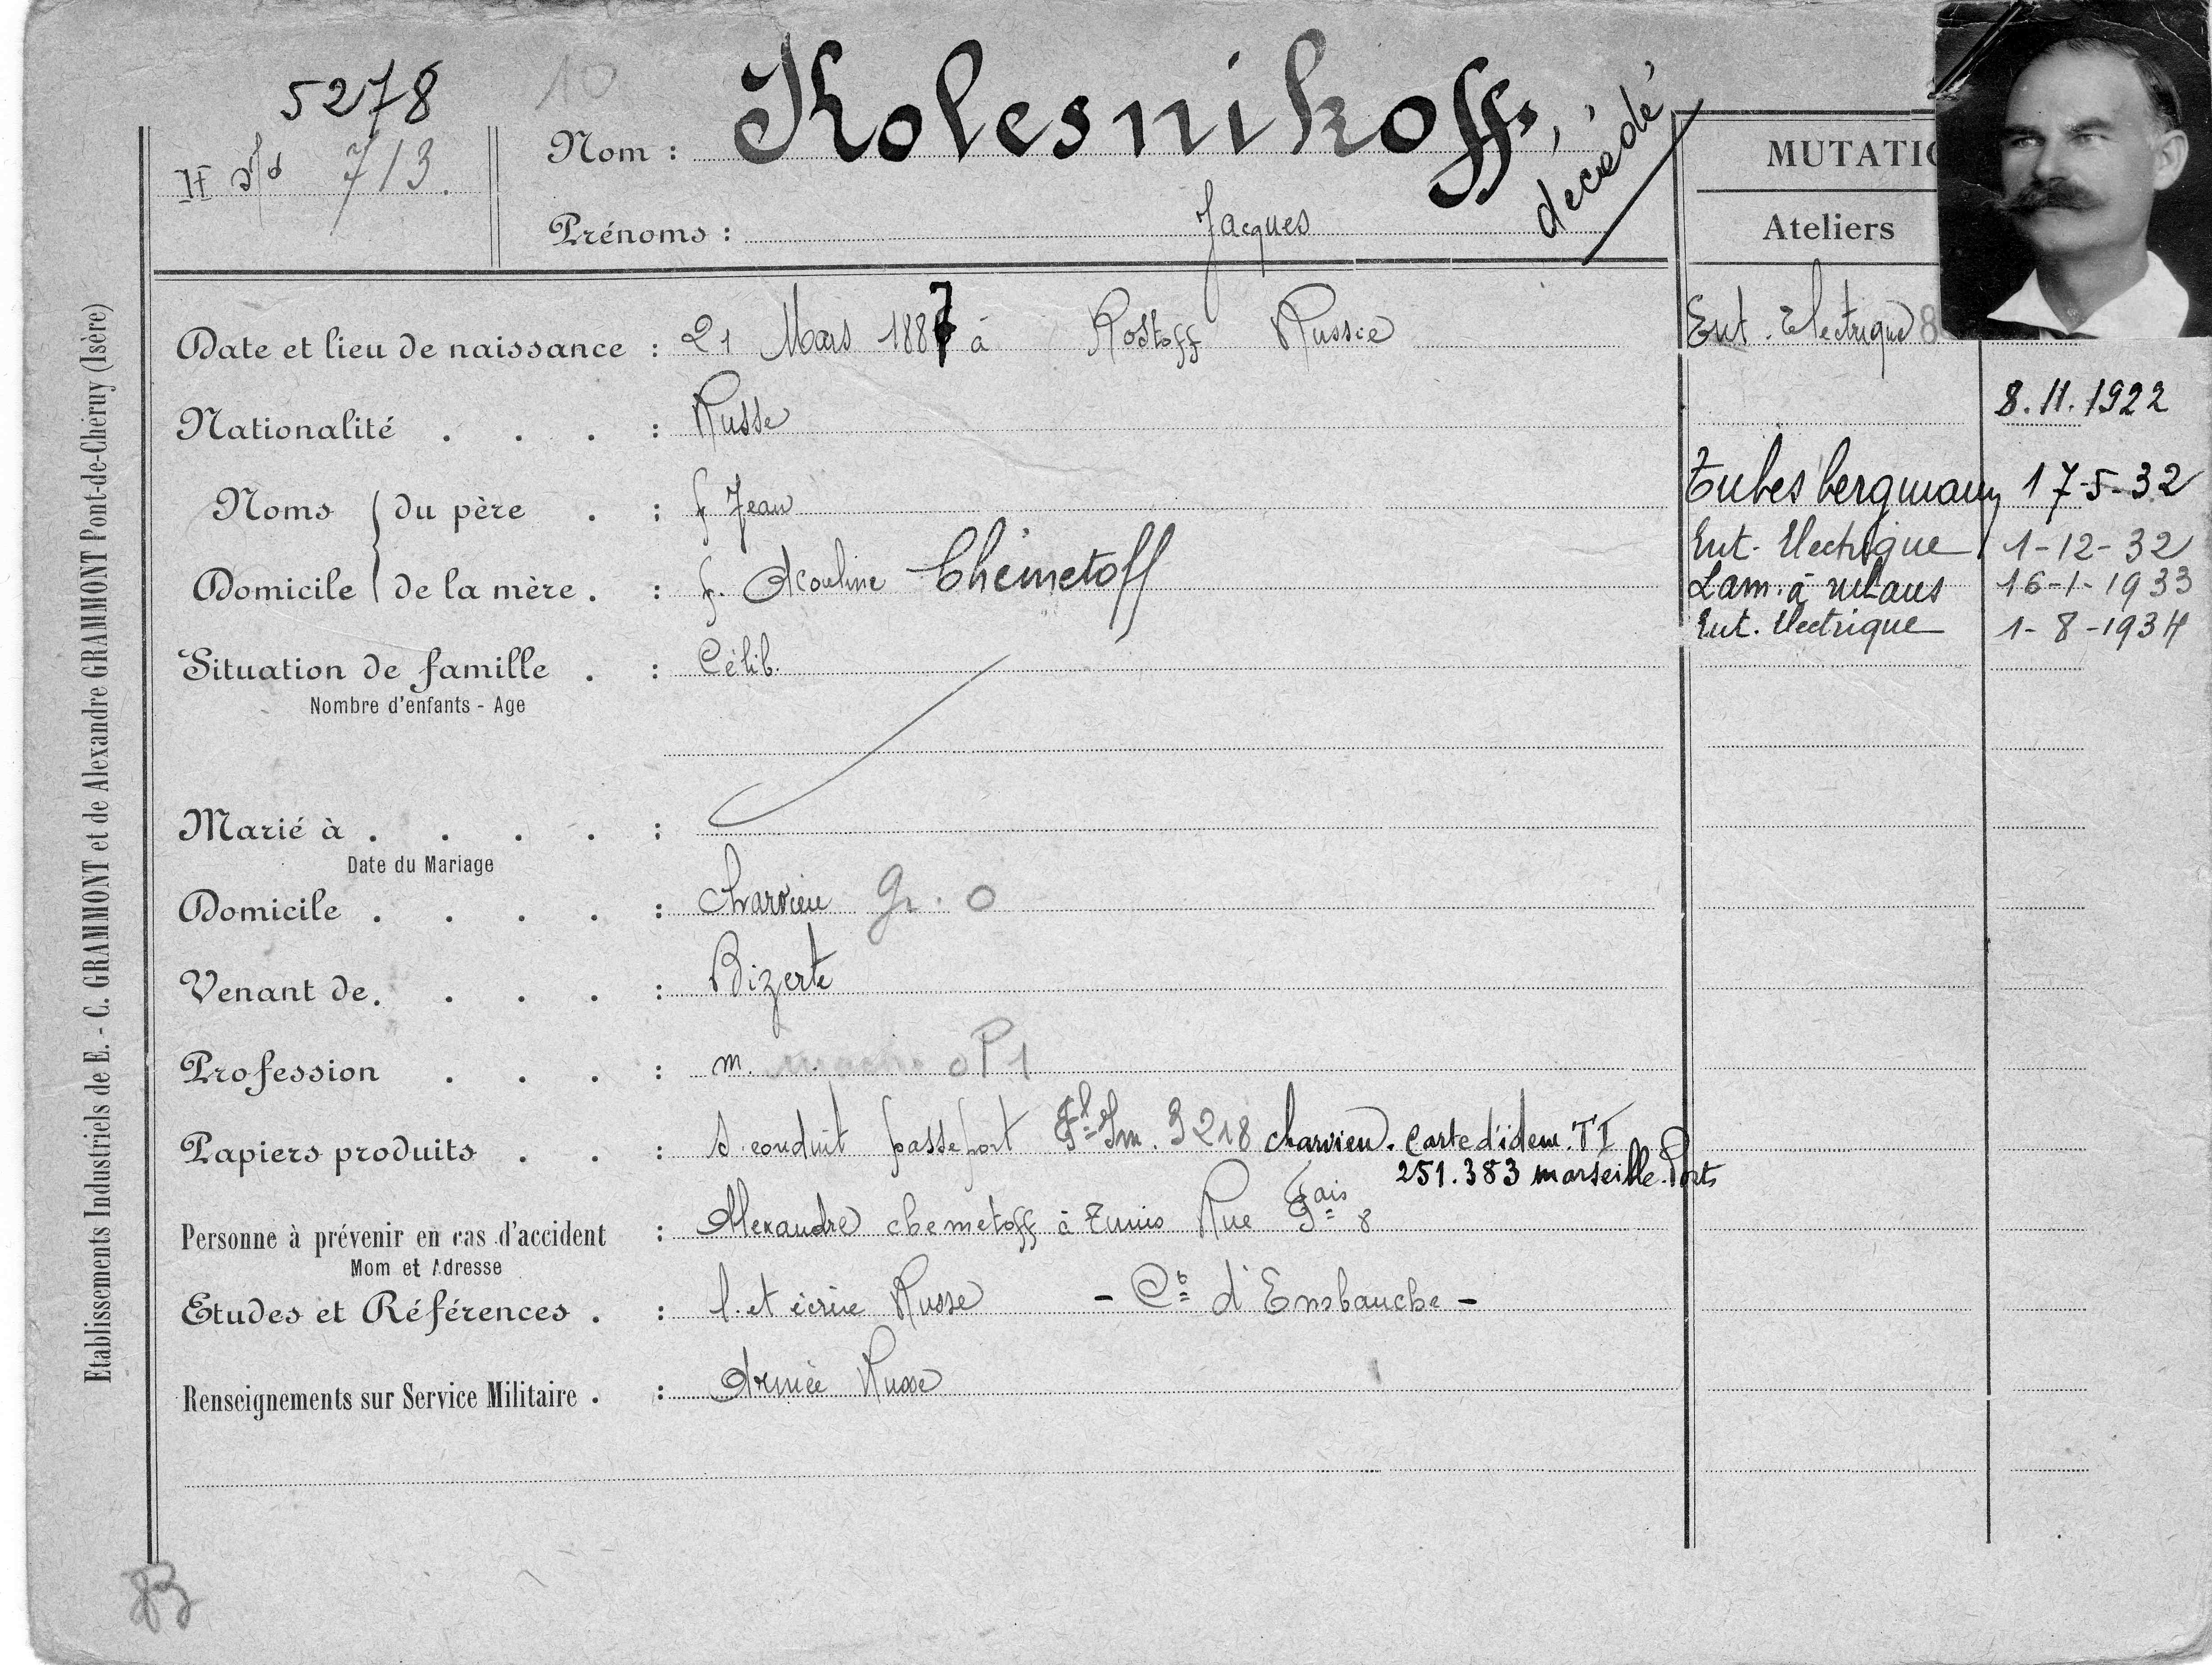 5278
10
713.
Nom : Kolesnikoff,
décédé
Prénoms : Jacques
MUTATIO
Ateliers
Date et lieu de naissance : 21 Mars 1887 à Rostoff Russie
Ent. Electrique 8
8.11.1922
Nationalité . . . : Russe
Tubes bergmann 17-5-32
Noms du père . : f. Jean
Ent. Electrique 1-12-32
Domicile de la mère . : f. Acouline Chémetoff
Lam. à 16-1-1933
Ent. Electrique 1-8-1934
Situation de famille . : Célib.
Nombre d'enfants - Age
Marié à . . . . :
Date du Mariage
Domicile . . . . : Charvieu Gr. O
Venant de . . . . : Bizerte
Profession . . . : m. OP1
Papiers produits . . : s. conduit passeport 3218 charvieu. Carte d'iden. TI
251.383 marseille. Ports
Personne à prévenir en cas d'accident : Alexandre chemetoff à Tunis Rue 8
Mom et Adresse
Etudes et Références . : l. et écrire Russe - d'Embauche -
Renseignements sur Service Militaire . : Armée Russe
Etablissements Industriels de E. - C. GRAMMONT et de Alexandre GRAMMONT Pont-de-Chéruy (Isère)